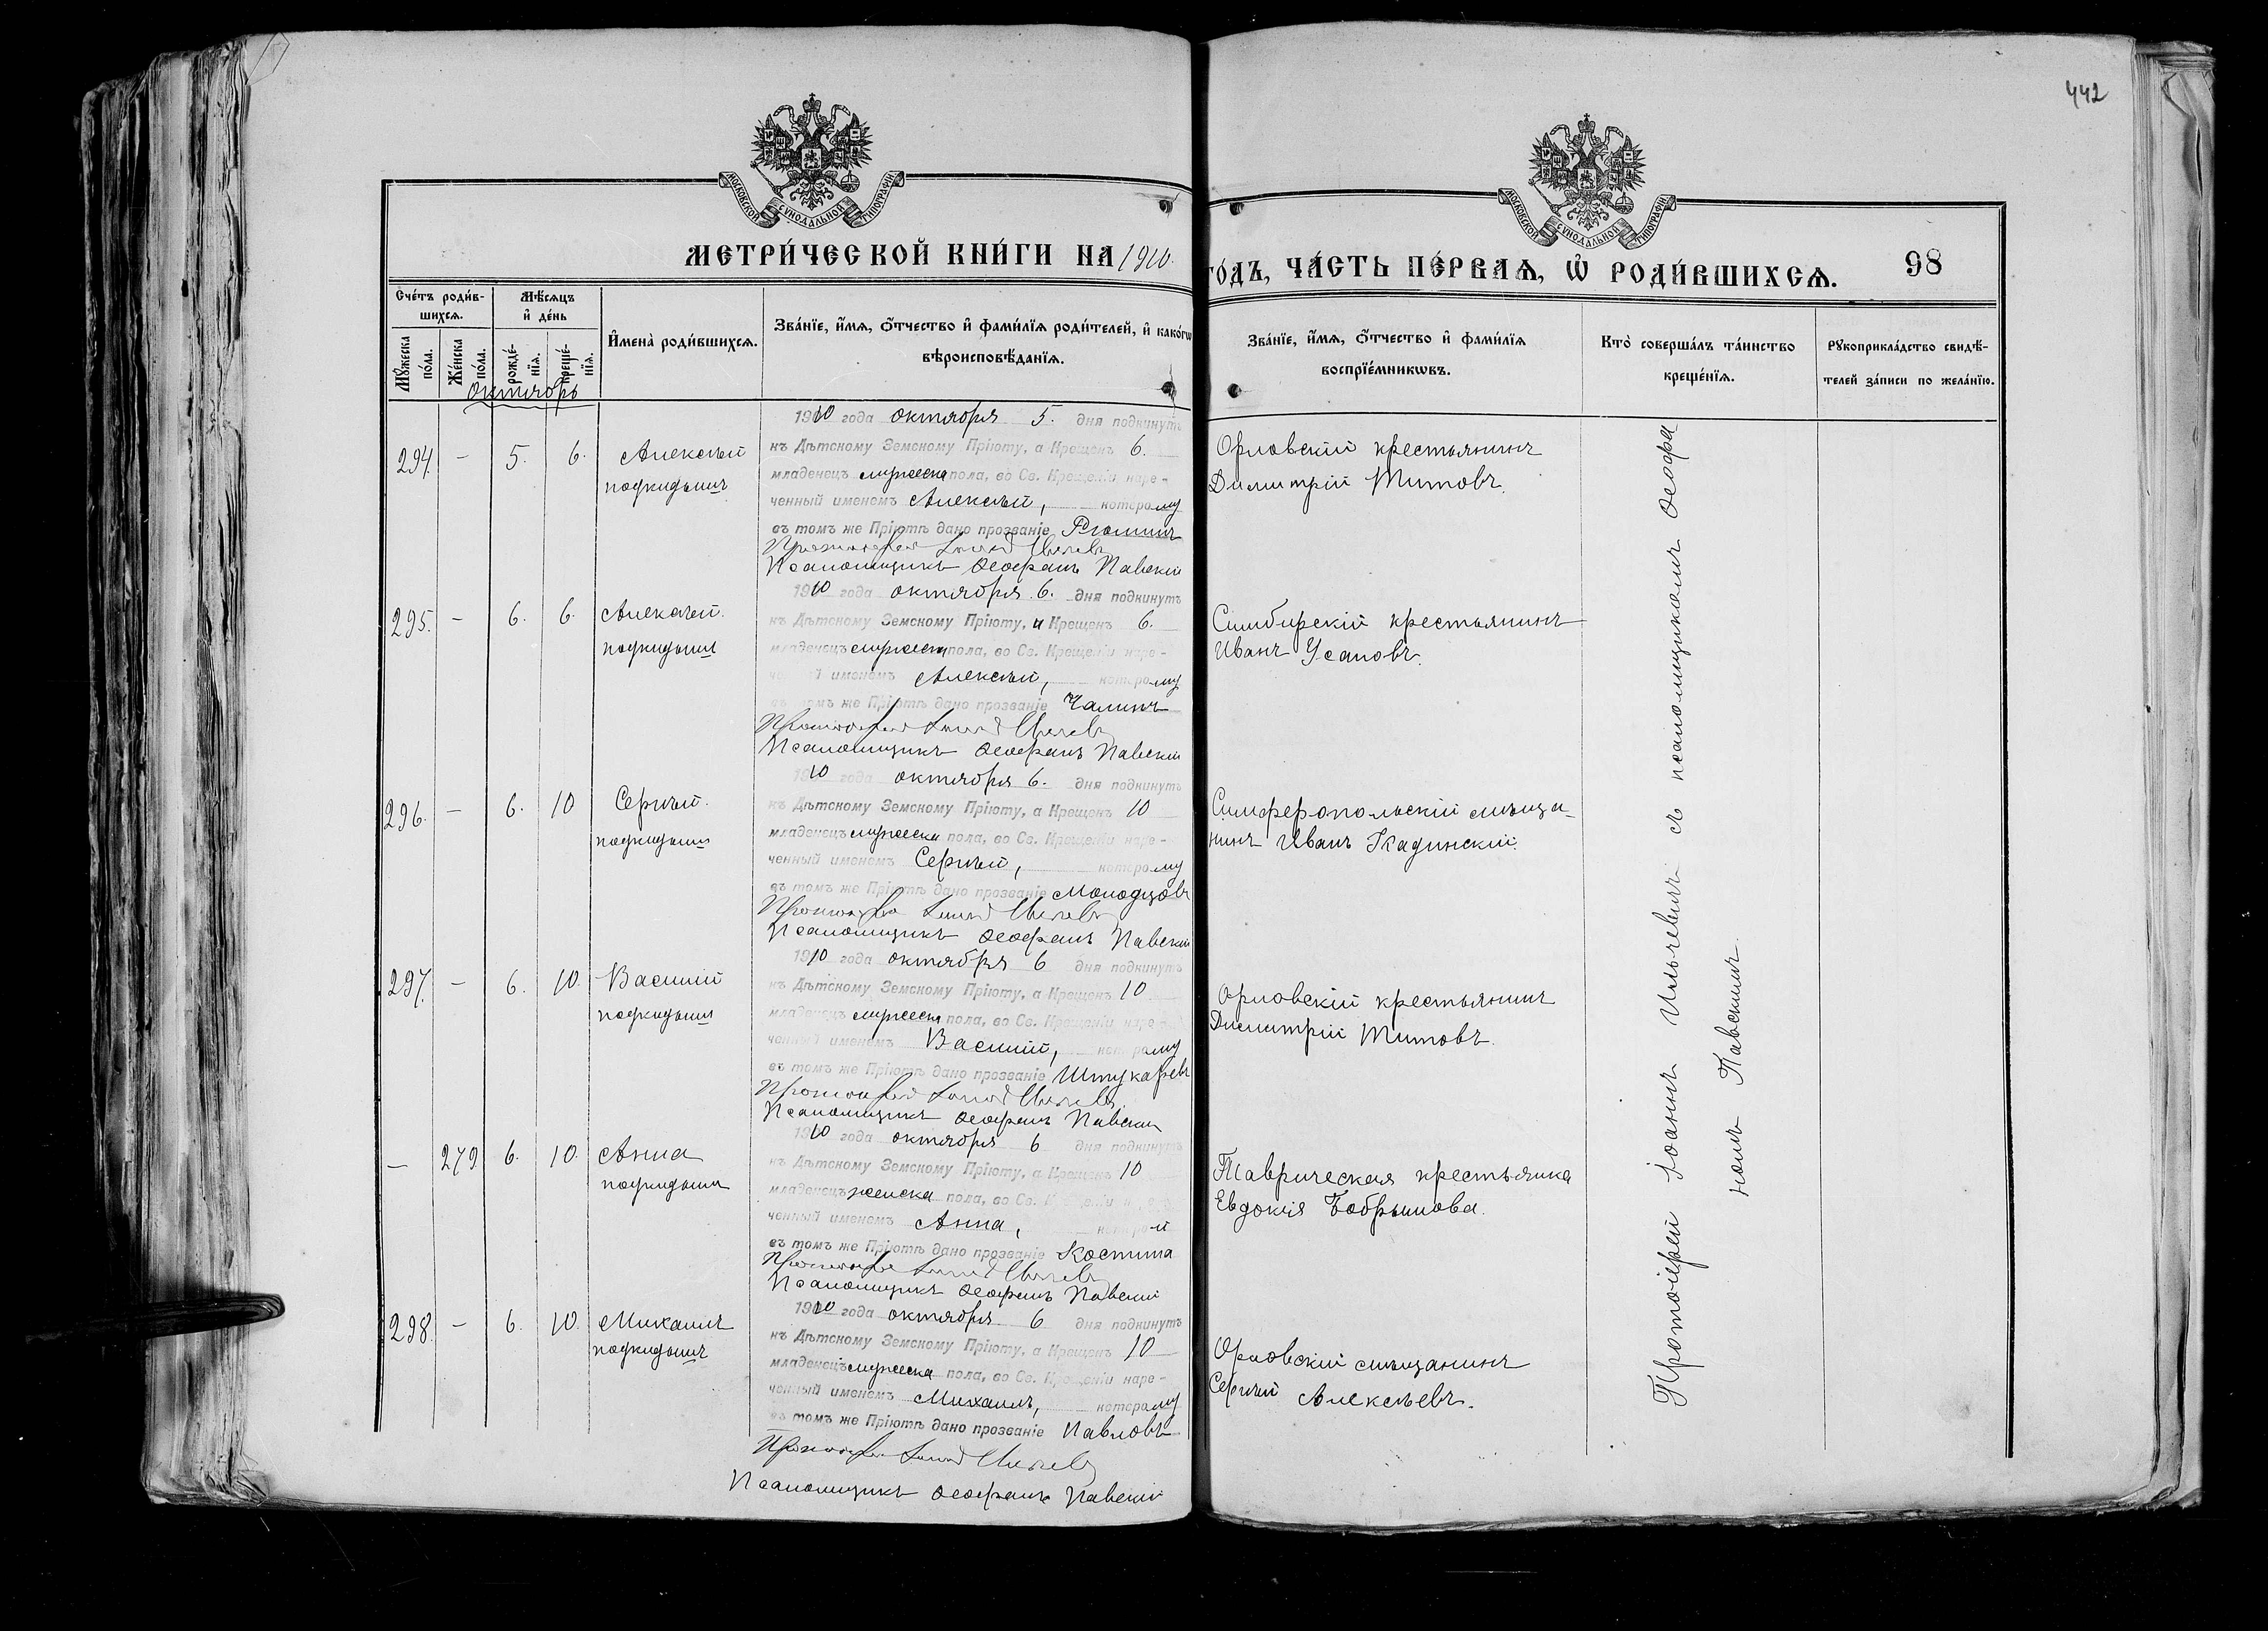 442
МОСКОВСКОЙ СУНОДАЛЬНОЙ ТИПОГРАФІИ
МОСКОВСКОЙ СУНОДАЛЬНОЙ ТИПОГРАФІИ
МЕТРИ́ЧЕСКОЙ КНИ́ГИ НА 1910.
ГО́ДЪ, ЧА́СТЬ ПЕ́РВАѦ, Ѡ҆ РОДИ́ВШИХСѦ. 98
Счетъ роди́в-
шихсѧ.
Мꙋ́жеска по́ла.
Же́нска по́ла.
Мѣ́сѧцъ
и҆ де́нь
рожде́-нїѧ.
креще́-нїѧ.
И҆мена̀ роди́вшихсѧ.
Зва́нїе, и҆́мѧ, ѻ҆́тчество и҆ фами́лїѧ роди́телей, и҆ како́гѡ
вѣроисповѣ́данїѧ.
Зва́нїе, и҆́мѧ, ѻ҆́тчество и҆ фами́лїѧ
воспрїе́мникѡвъ.
Кто̀ соверша́лъ та́инство
креще́нїѧ.
Рꙋкоприкла́дство свидѣ́-
телей за́писи по жела́нїю.
Октябрь
294. – 5. 6. Алексѣй
подкидышъ
1910 года октября 5. дня подкинутъ
къ Дѣтскому Земскому Пріюту, а Крещенъ 6.
младенецъ мужеска пола, во Св. Крещеніи наре-
ченный именемъ Алексѣй, которому
въ томъ же Пріютѣ дано прозваніе Рюминъ
Протоіерей Іоаннъ Ильчевъ
Псаломщикъ Ѳеофанъ Павскій
Орловскій крестьянинъ
Димитрій Титовъ.
295. – 6. 6. Алексѣй.
подкидыш
1910 года октября 6. дня подкинутъ
къ Дѣтскому Земскому Пріюту, и Крещенъ 6.
младенецъ мужеска пола, во Св. Крещеніи наре-
ченный именемъ Алексѣй, которому
въ томъ же Пріютѣ дано прозваніе Чалинъ
Протоіерей Іоаннъ Ильчевъ
Псаломщикъ Ѳеофанъ Павскій
Симбирскій крестьянинъ
Иванъ Усановъ.
296. – 6. 10 Сергѣй.
подкидыш
1910 года октября 6. дня подкинутъ
къ Дѣтскому Земскому Пріюту, а Крещенъ 10
младенецъ мужеска пола, во Св. Крещеніи наре-
ченный именемъ Сергѣй, которому
въ томъ же Пріютѣ дано прозваніе Молодцовъ
Протоіерей Іоаннъ Ильчевъ
Псаломщикъ Ѳеофанъ Павскій
Симферопольскій мѣща-
нинъ Иванъ Кадинскій.
297. – 6. 10. Василій
подкидыш
1910 года октября 6 дня подкинутъ
къ Дѣтскому Земскому Пріюту, а Крещенъ 10
младенецъ мужеска пола, во Св. Крещеніи наре-
ченный именемъ Василій, которому
въ томъ же Пріютѣ дано прозваніе Штукаревъ
Протоіерей Іоаннъ Ильчевъ
Псаломщикъ Ѳеофанъ Павскій
Орловскій крестьянинъ
Димитрій Титовъ.
– 279 6. 10. Анна
подкидыш
1910 года октября 6 дня подкинутъ
къ Дѣтскому Земскому Пріюту, а Крещенъ 10
младенецъ женска пола, во Св. Крещеніи наре-
ченный именемъ Анна, которой
въ томъ же Пріютѣ дано прозваніе Костина
Протоіерей Іоаннъ Ильчевъ
Псаломщикъ Ѳеофанъ Павскій
Таврическая крестьянка
Евдокія Бобрышова.
298. – 6. 10. Михаилъ
подкидышъ
1910 года октября 6 дня подкинутъ
къ Дѣтскому Земскому Пріюту, а Крещенъ 10
младенецъ мужеска пола, во Св. Крещеніи наре-
ченный именемъ Михаилъ, которому
въ томъ же Пріютѣ дано прозваніе Павловъ
Протоіерей Іоаннъ Ильчевъ
Псаломщикъ Ѳеофанъ Павскій
Орловскій мѣщанинъ
Сергѣй Алексѣевъ.
Протоіерей Іоаннъ Ильчевъ съ псаломщикомъ Ѳеофа
номъ Павскимъ.